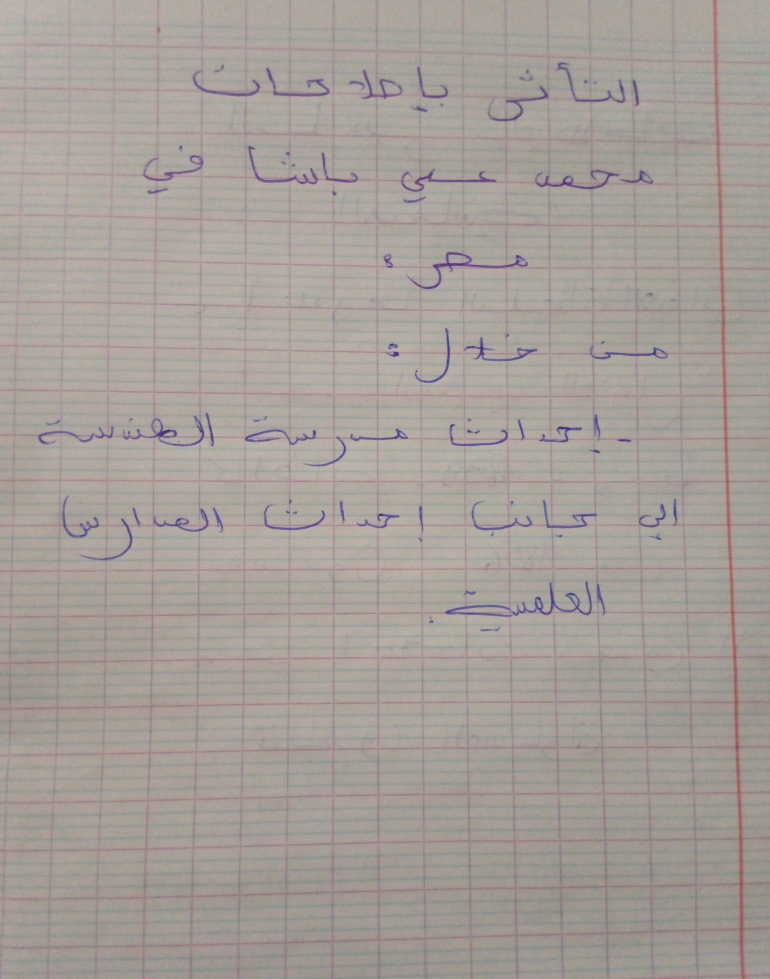 التأثر بإصلاحات
محمد علي باشا في
مصر :
من خلال :
- إحداث مدرسة الهندسة
الى جانب إحداث المدارس
العلمية .